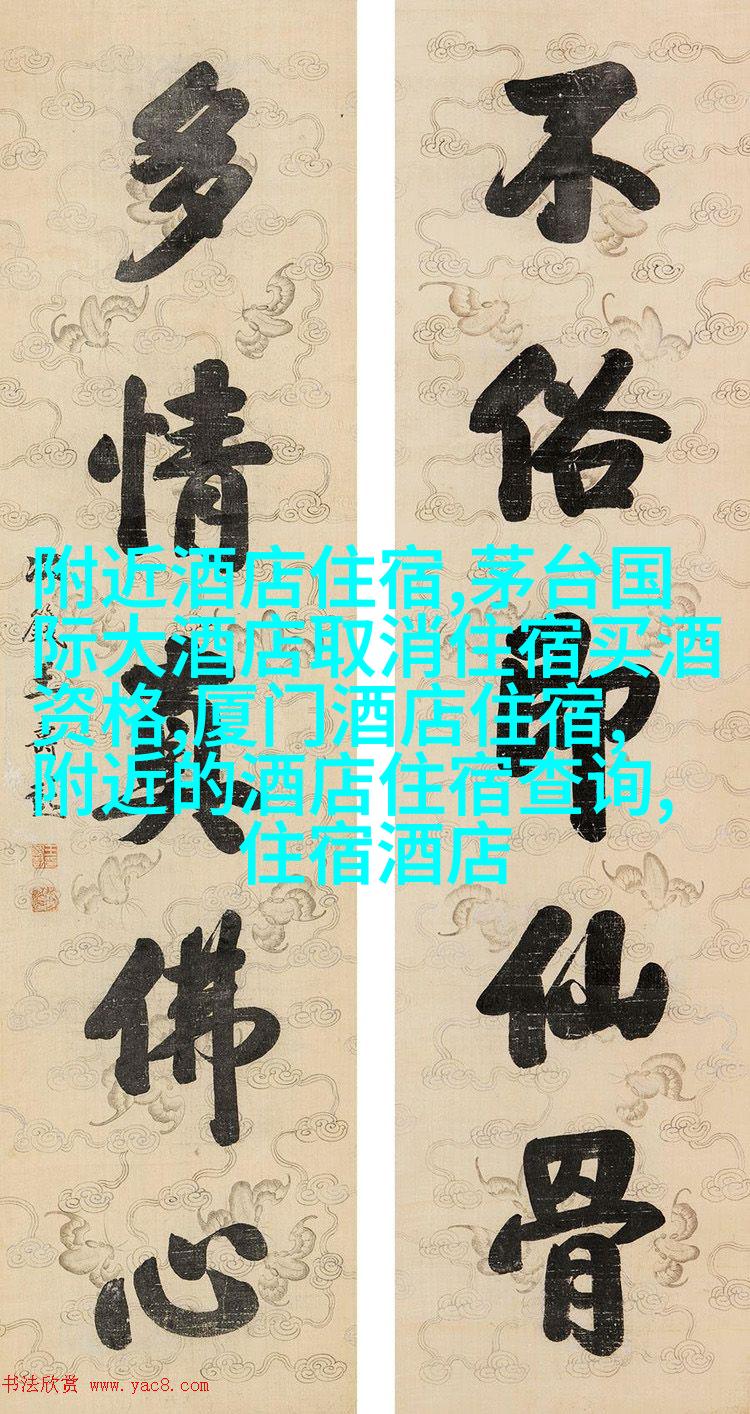 不俗即仙骨
多情真佛心
附近酒店住宿,茅台国
际大酒店取消住宿买酒
资格,厦门酒店住宿,
附近的酒店住宿查询,
住宿酒店
书法欣赏 www.yac8.com